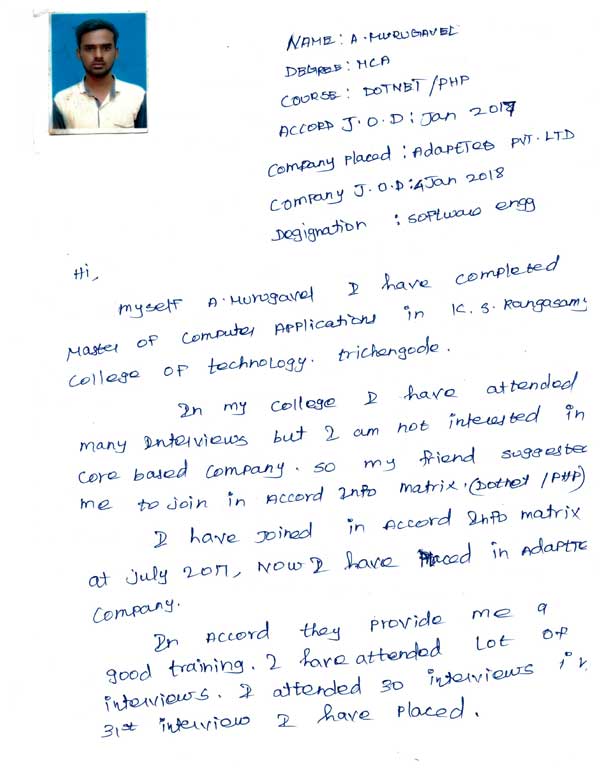 NAME: A. MURUGAVEL
DEGREE: MCA
COURSE: DOTNET/PHP
ACCORD J.O.D: Jan 2017
Company placed: AdapETEQ PVT. LTD
Company J.O.D: 4 Jan 2018
Degignation : software engg
Hi,
myself A. Murugavel I have completed
Master of Computer Applications in K.S. Rangasamy
College of technology. trichengode.
In my college I have attended
many Interviews but I am not interested in
core based company. so my friend suggested
me to join in Accord Info matrix. (Dotnet /PHP)
I have joined in Accord Info matrix
at July 2017, NOW I have Placed in
company.
In Accord they provide me a
good training. I have attended Lot of
interviews. I attended 30 interviews in
31st interview I have placed.